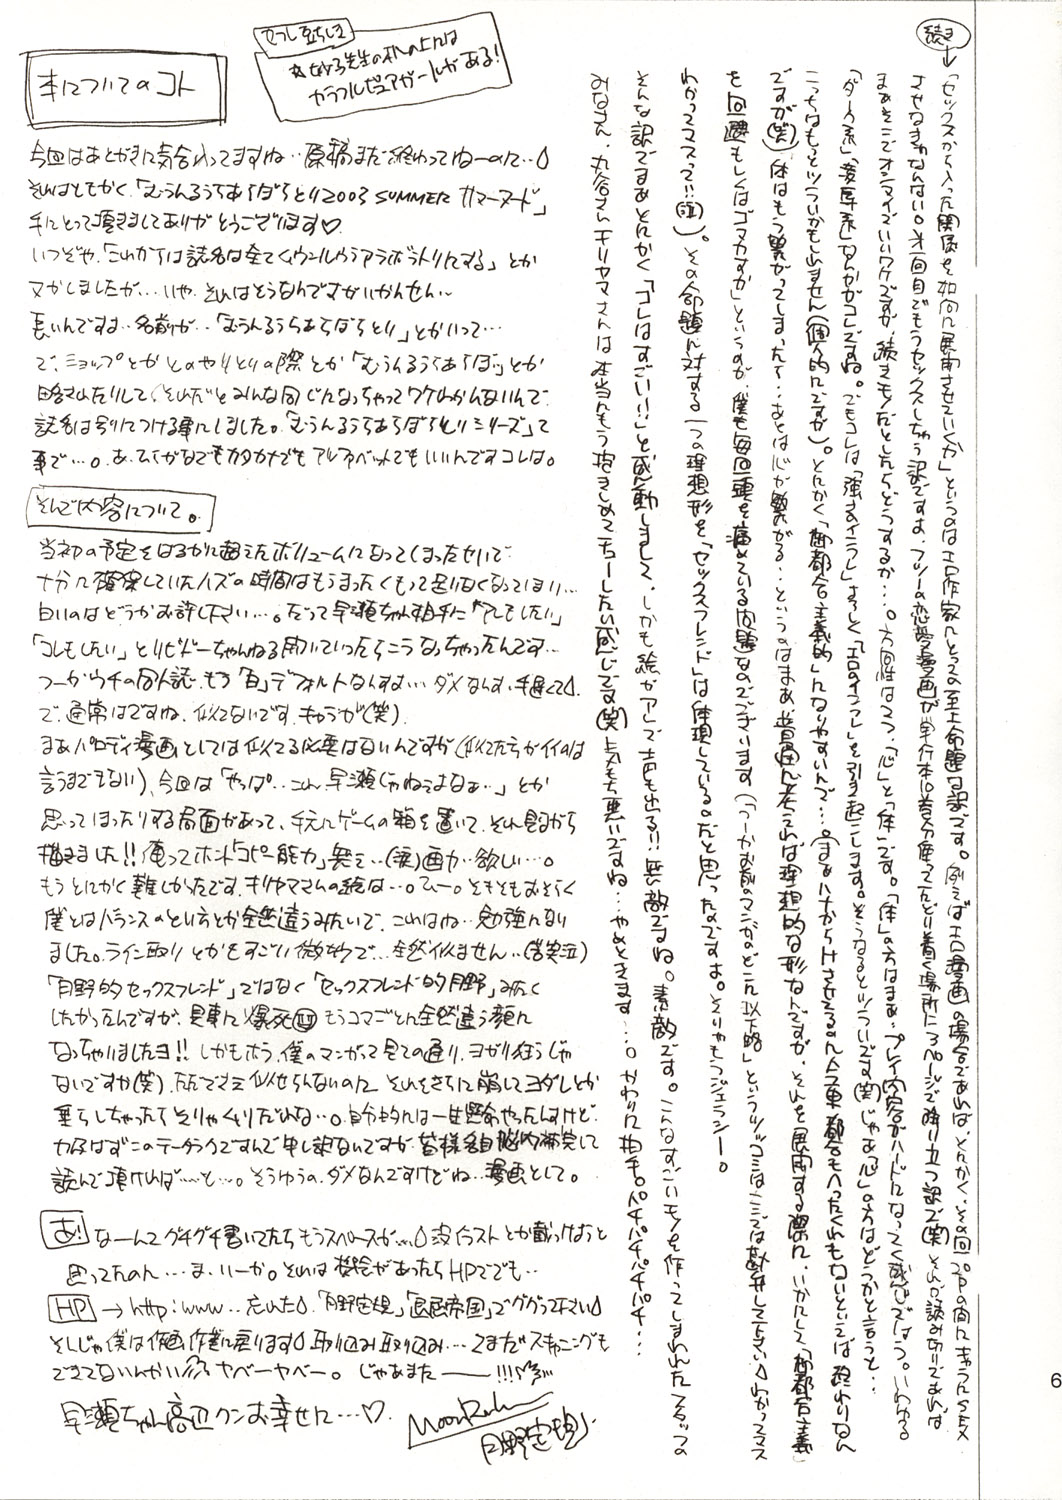 続き
「セックスから入った関係を如何に展開させていくか」というのはエロ作家にとっての至上命題な訳です。例えばエロ漫画の場合であれば、とにかくその回20Pの間にキャラにSEX
させなきゃなんない。オ一回目でもうセックスしちゃう訳ですよ、フツーの恋愛漫画が単行本10巻分使ってたどり着く場所に3ページで降り立つ訳で(笑)それが読み切りであれば
まぁそこでオシマイでいいワケですが、続きモノだとしたらどうするか…。方向性は2つ、「心」と「体」です。「体」の方はまぁ、プレイ内容がハードになってく感じでしょう。いわゆる
「ダーク系」「凌辱系」なんかがコレですね。でもコレは「強さのインフレ」よろしく「エロのインフレ」を引き起こします。そうなるとツライです(笑)じゃあ「心」の方はどうかと言うと…
こっちはもっとツライかもしれません(個人的にですが)。とにかく「御都合主義的」になりやすいんで…。(まぁハナからHさせてる
ですが(笑)体はもう繋がってしまったて…あとは心が繋がる…というのはまぁ、普通に考えれば理想的な形なんですが、それを展開する際に、いかにして「御都合主義」
を回避もしくはゴマカすか」というのが、僕も毎回頭を痛めている問題なのでございます(「つーかお前のマンガのどこが以下略」というツッコミはここでは勘弁して下さい わかってマス
わかってマスって!!(泣))。その命題に対する一つの理想形を「セックスフレンド」は体現している。だと思ったのですよ。そりゃもうジェラシー。
そんな訳でまぁとにかく「コレはすごい!!」と感動しまして、しかも絵がアレで声も出る!!無敵ですね。素敵です。こんなすごいモノを作ってしまわれたスタッフの
みなさん、九谷さん、キリヤマさんは本当にもう抱きしめてチューしたい感じです(笑)
本についてのコト
☆妙子先生の机の上には
カラフルピュアガールがある!
今回はあとがきに気合入ってますね…原稿まだ終わってねーのに…
それはともかく、「むうんるうらあらぼらとり2003 SUMMER サマーヌード」
手にとって頂きましてありがとうございます♡
いつぞや、「これからは誌名は全て
とか
ヌかしましたが…いや、それはそうなんですがいかんせん〜
長いんですよ…名前が…「むうんるうらあらぼらとり」とかいって…
で、ショップとかとのやりとりの際とか「むうんるうらあらぼ」とか
略されたりして、それだとみんな同じになっちゃってワケわかんないんで
誌名は別につける事にしました。「むうんるうらあらぼらとりシリーズ」て
事で…。あ、ひらがなでもカタカナでもアルファベットでもいいんですコレは。
そんで内容について。
当初の予定をはるかに超えたボリュームになってしまったせいで
十分に確保していたハズの時間はもうまったくもって足りなくなってしまい…
白いのはどうかお許し下さい…。だって早瀬ちゃん相手に「アレもしたい」
「コレもしたい」とリビドーちゃんねる開いていったらこうなっちゃったんです…
つーかウチの同人誌、もう「白」デフォルトなんすよ…ダメなんす、手遅くて
で、通常はですね、似てないです、キャラが(笑)
まぁパロディ漫画としては似てる必要はないんですが(似てた方がイイのは
言うまでもない)、今回は「やっぱ…こんな早瀬じゃねぇよなぁ…」とか
思ってしまったりする局面があって、手元にゲームの箱を置いて、それ見ながら
描きました!!俺ってホント「コピー能力」無ぇ…(涙)画力欲しい…。
もうとにかく難しかったです、キリヤマさんの絵は…。
僕とはバランスのとり方とか全然違うみたいで、これはね…勉強になり
ました。ライン取りとかもすごい微妙で…全然似ません…(苦笑泣)
「月野的セックスフレンド」ではなく「セックスフレンド的月野」みたく
したかったんですが、見事に爆死(泣)もうコマごとに全然違う顔に
なっちゃいましたヨ!!しかもホラ、僕のマンガって見ての通り、ヨガリ狂うじゃ
ないですか(笑)、ただでさえ似せらんないのに、それをさらに崩してヨダレとか
垂らしちゃったらそりゃムリだわな…。自分的には一生懸命やったんすけど、
力及ばずこのテータラクですんで申し訳ないですが、皆様各自脳内補完して
読んで頂ければ…と…。そうゆうの、ダメなんですけどね…漫画として。
あ! なーんてグチグチ書いてたらもうスペースが…没イラストとか載っけようと
思ってたのに…ま、いーか。それは機会があったらHPででも…
HP→http:www…忘れた、「月野定規」「退屈帝国」でググって下さい
そんじゃ僕は作画作業に戻ります 取り込み取り込み…てまだスキャニングも
できてないんかい ヤベーヤベー。じゃあまたーーー!!!
早瀬ちゃん高辺クンお幸せに…♡
月野定規
6